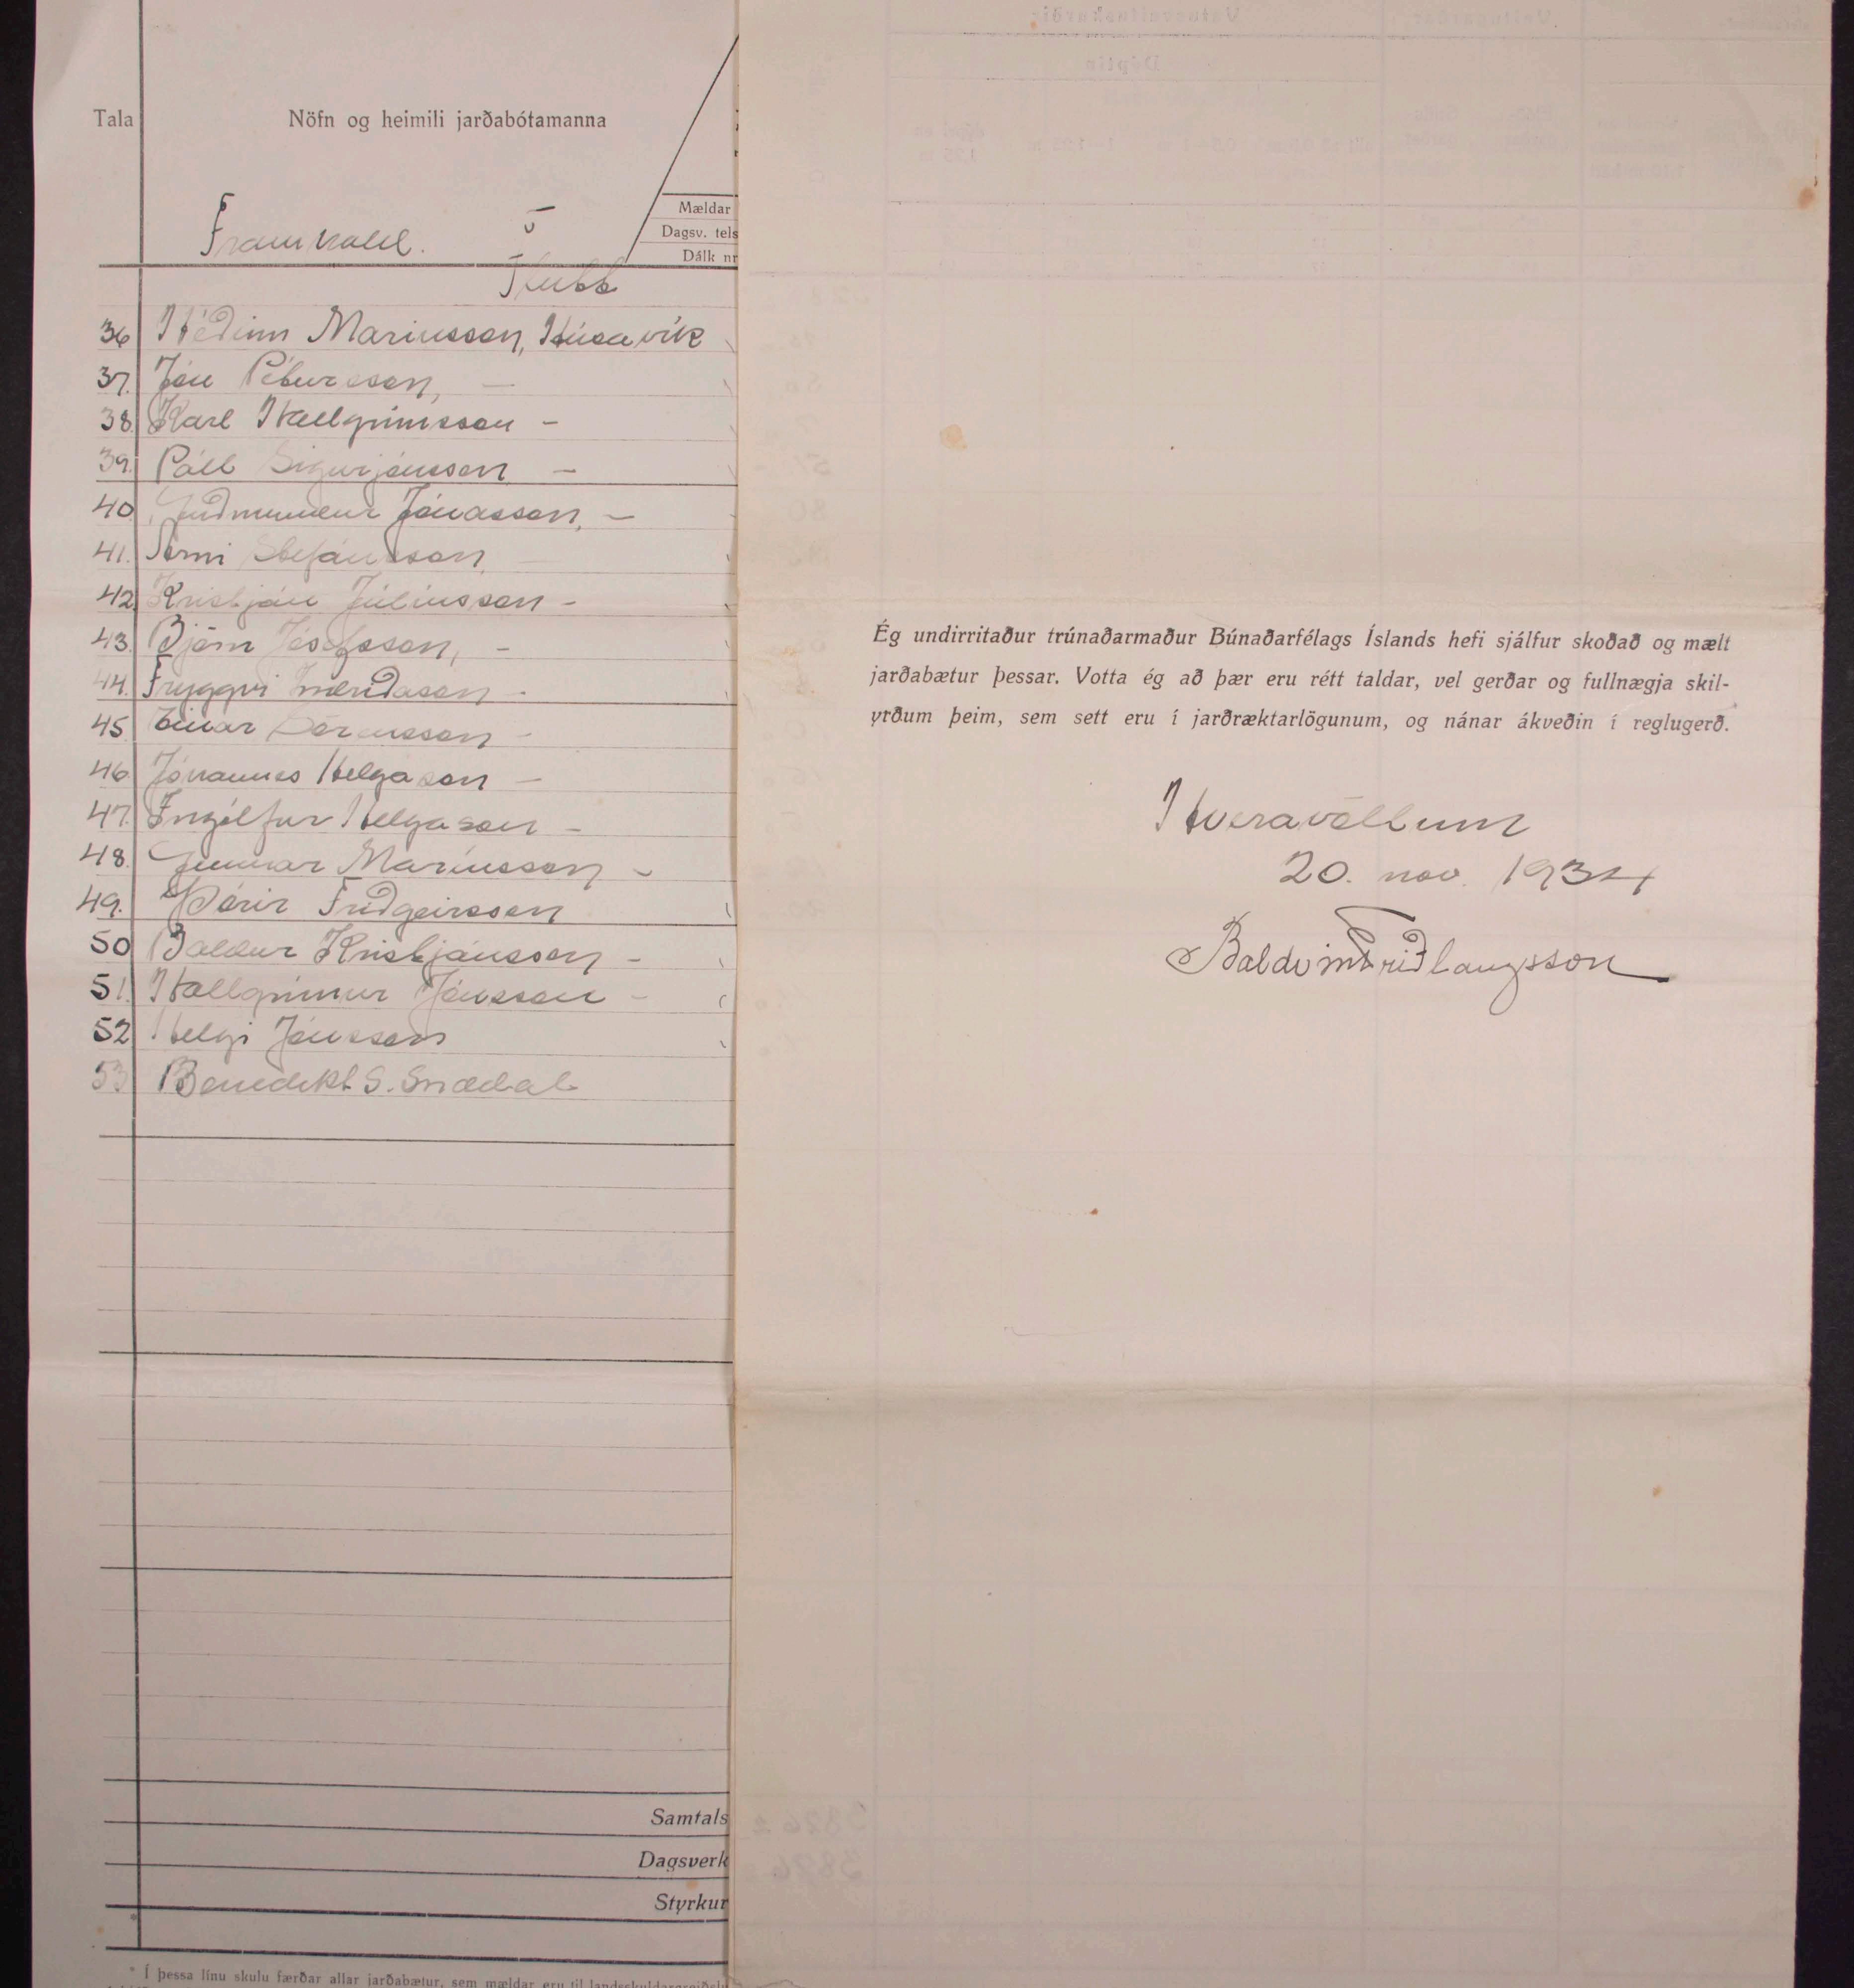 Tala
Nöfn og heimili jarðabótamanna
Mældar
Dagsv. tels
Framhald.
Dálk nr
36 Héðinn Maríusson, Húsavík
37. Jón Pétursson, —
38. Karl Hallgrímsson —
39. Páll Sigurjónsson —
40. Guðmundur Jónasson, —
41. Árni Stefánsson, —
42. Kristján Júlíusson —
43. Björn Jósefsson, —
44. Tryggvi Indriðason —
45. Einar Sörensson —
46. Jóhannes Helgason —
47. Ingólfur Helgason —
48. Gunnar Maríusson —
49. Þórir Friðgeirsson
50 Baldur Kristjánsson —
51. Hallgrímur Jónsson —
52 Helgi Jónsson
53 Benedikt S. Snædal
Samtals
Dagsverk
Styrkur
* Í þessa línu skulu færðar allar jarðabætur, sem mældar eru til
Ég undirritaður trúnaðarmaður Búnaðarfélags Íslands hefi sjálfur skoðað og mælt
jarðabætur þessar. Votta ég að þær eru rétt taldar, vel gerðar og fullnægja skil-
yrðum þeim, sem sett eru í jarðræktarlögunum, og nánar ákveðin í reglugerð.
Hveravöllum
20. nov. 1934
Baldvin Friðlaugsson